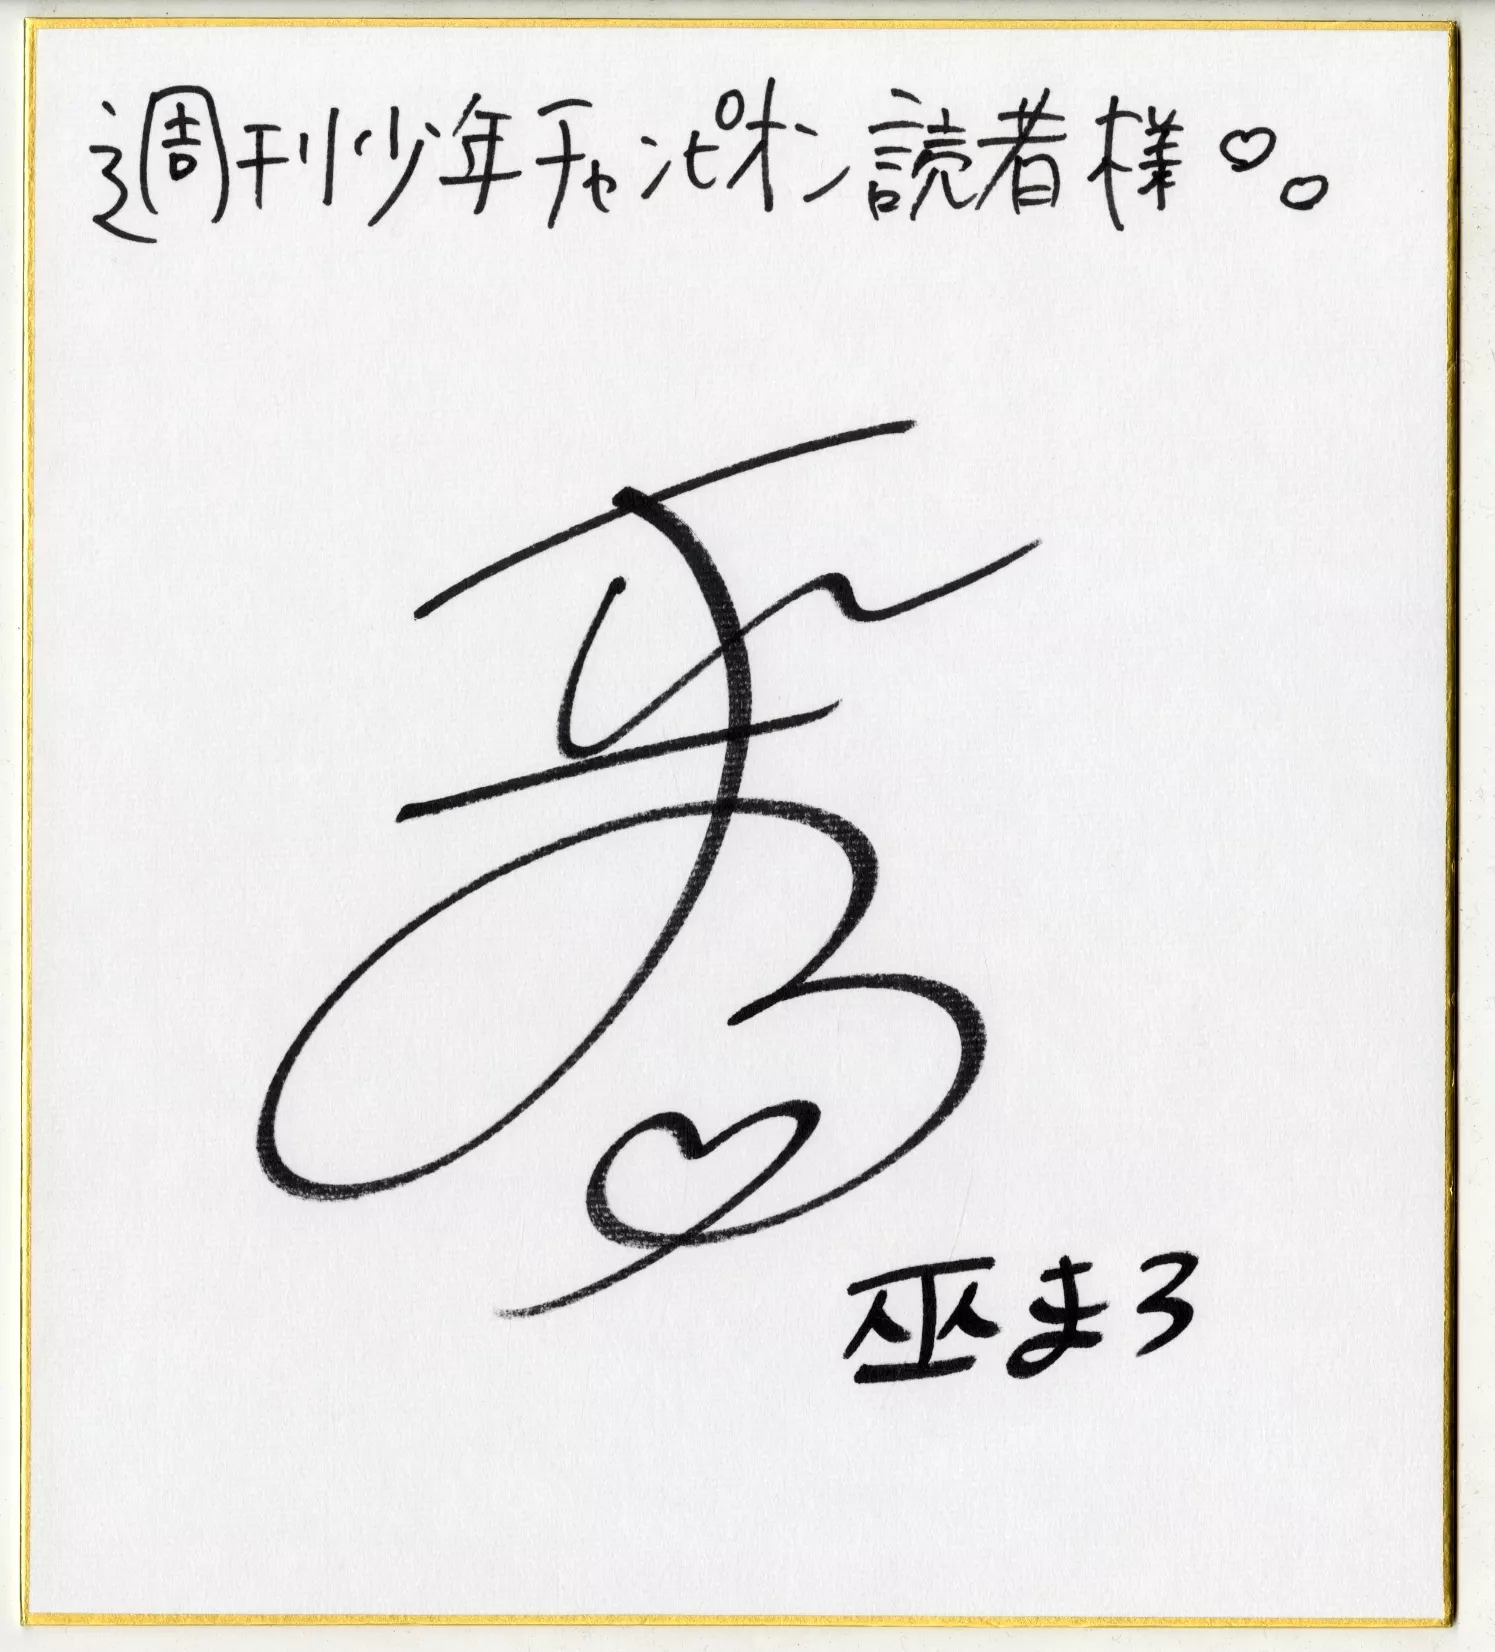 週刊少年チャンピオン読者様♡♡
巫まろ